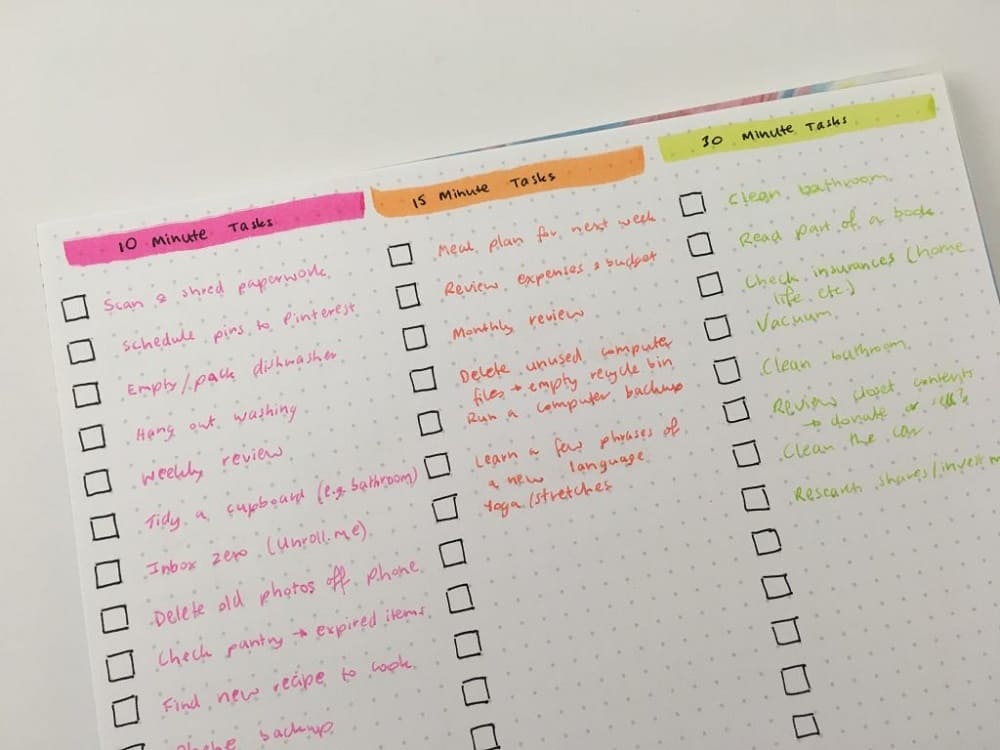 10 Minute Tasks
Scan & shred paperwork
Schedule pins to Pinterest
Empty/pack dishwasher
Hang out washing
Weekly review
Tidy a cupboard (e.g. bathroom)
Inbox zero (unroll.me)
Delete old photos off phone
Check pantry → expired items
Find new recipe to cook
Phone backup
15 Minute Tasks
Meal plan for next week
Review expenses & budget
Monthly review
Delete unused computer
files → empty recycle bin
Run a computer backup
Learn a few phrases of
a new language
Yoga/stretches
30 Minute Tasks
Clean bathroom
Read part of a book
Check insurances (home
life, etc.)
Vacuum
Clean bathroom
Review closet contents
→ donate or
Clean the car
Research shares/